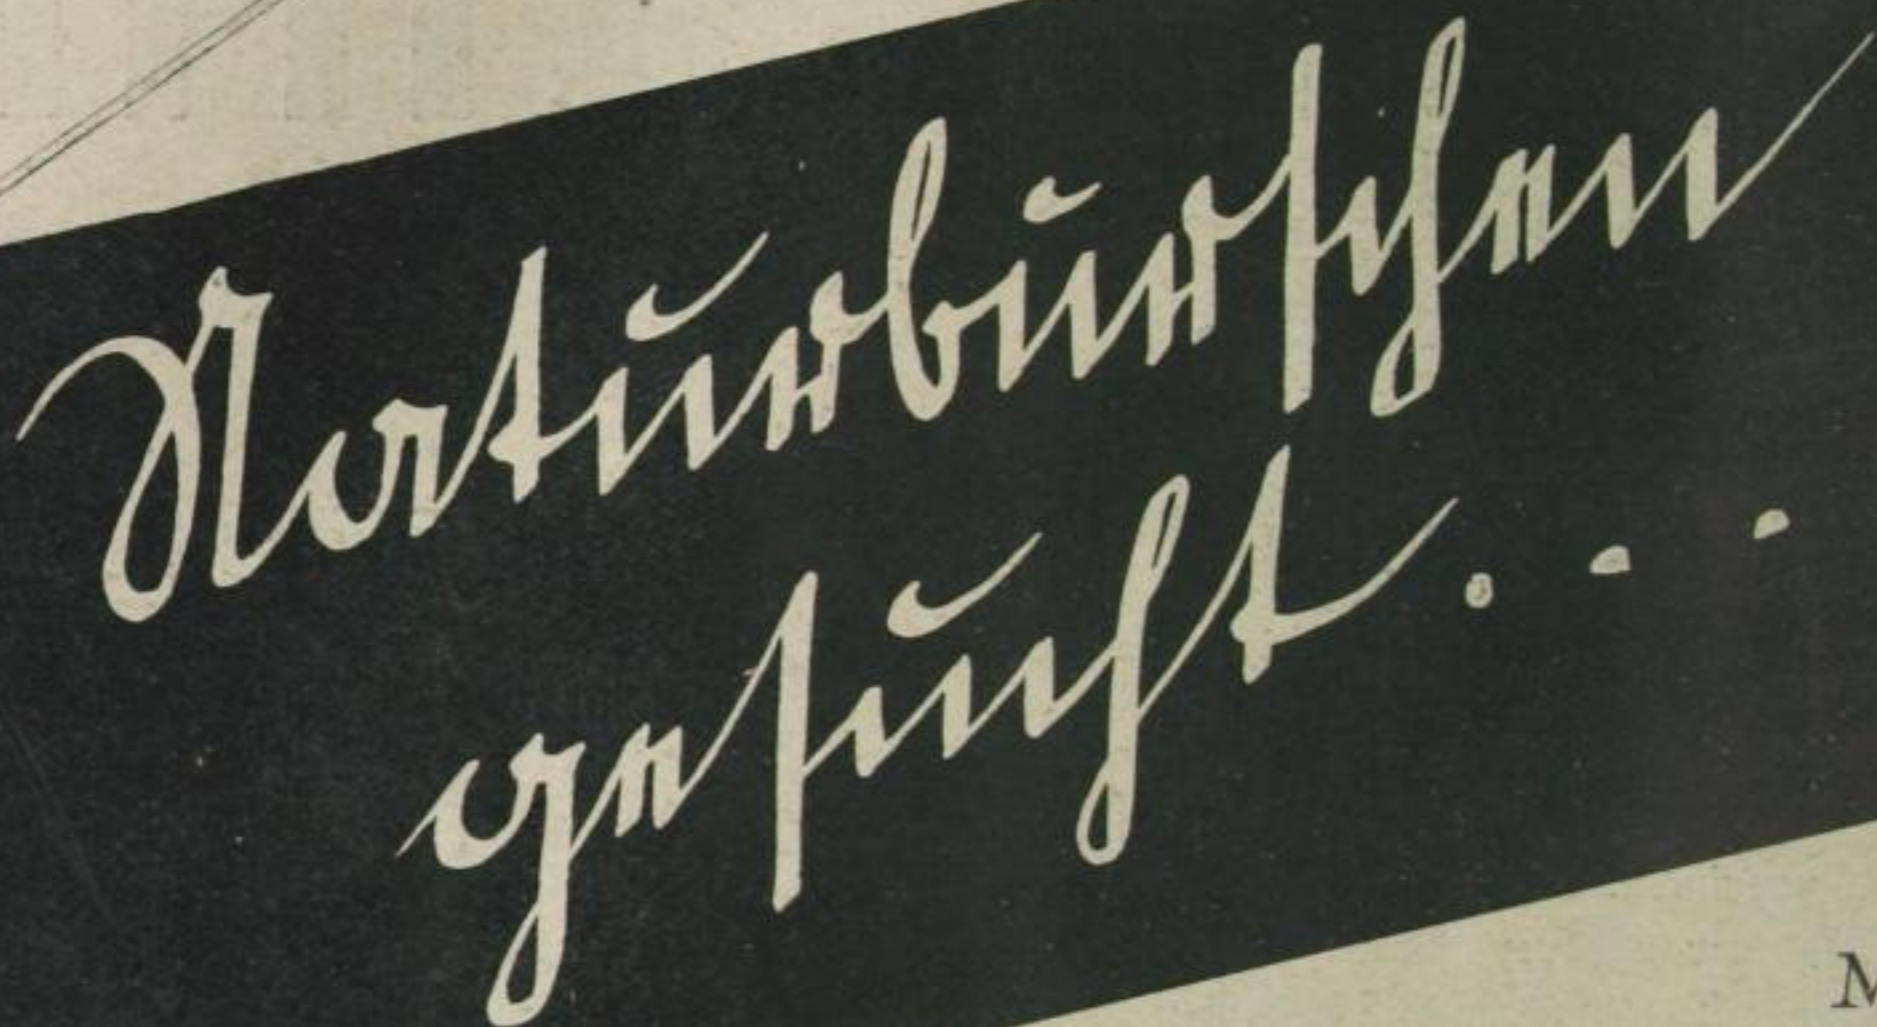 Naturburschen
gesucht...
M